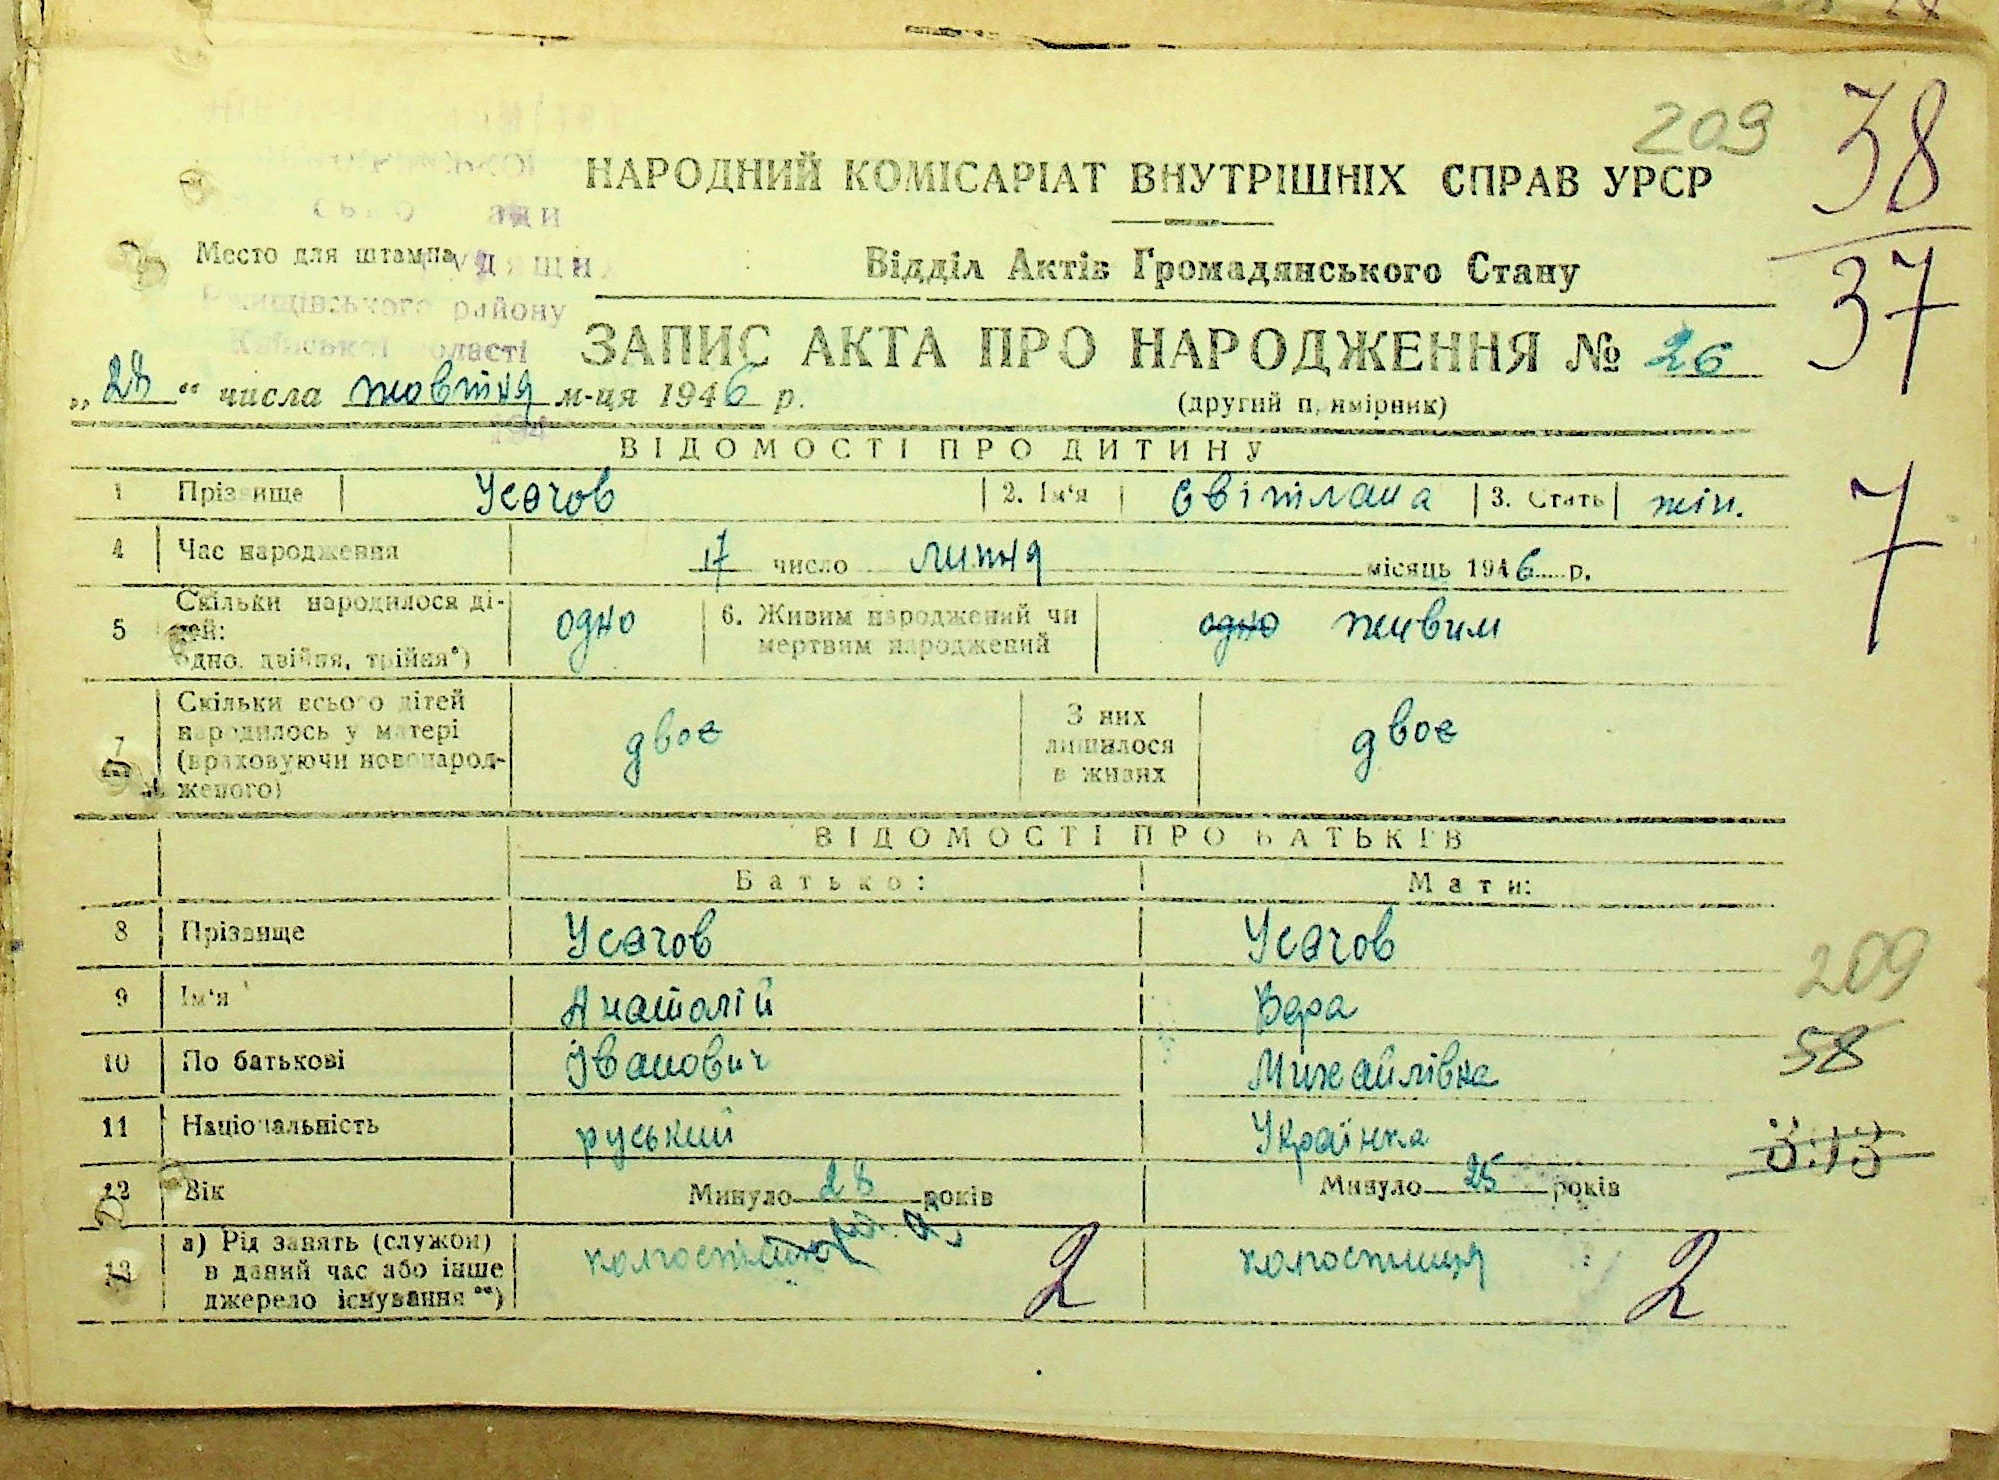 209
38
37
7
НАРОДНИЙ КОМІСАРІАТ ВНУТРІШНІХ СПРАВ УРСР
Место для штампа
Відділ Актів Громадянського Стану
району
Київської області
ЗАПИС АКТА ПРО НАРОДЖЕННЯ № 26
„28“ числа жовтня м-ця 1946 р.
(другий примірник)
194
ВІДОМОСТІ ПРО ДИТИНУ
1 Прізвище Усачов 2. Ім'я Світлана 3. Стать жін.
4 Час народження 17 число липня місяць 1946 р.
5 Скільки народилося ді-
тей:
одно, двійня, трійня*) одно 6. Живим народжений чи
мертвим народжений одно живим
7 Скільки всього дітей
народилось у матері
(враховуючи новонарод-
женого) двоє З них
лишилося
в живих двоє
ВІДОМОСТІ ПРО БАТЬКІВ
Батько: Мати:
8 Прізвище Усачов Усачов
9 Ім'я Анатолій Вера
209
10 По батькові Іванович Михайлівна
58
11 Національність руський Українка
3.13
12 Вік Минуло 28 років Минуло 25 років
13 а) Рід занять (служби)
в даний час або інше
джерело існування **) 2 колгоспниця 2